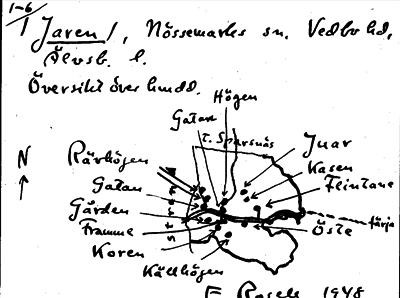 1-6/
1 Jaren/, Nössemarks sn. Vedbo hd,
Älvsb. l.
Översikt över hmdd.
Högen
Gatan
t. Sparsnäs
Juar
N
Rävhögen
Kasen
Gatan
Flintane
Gården
färja
Framme
Öste
Koren
Källhögen
1948